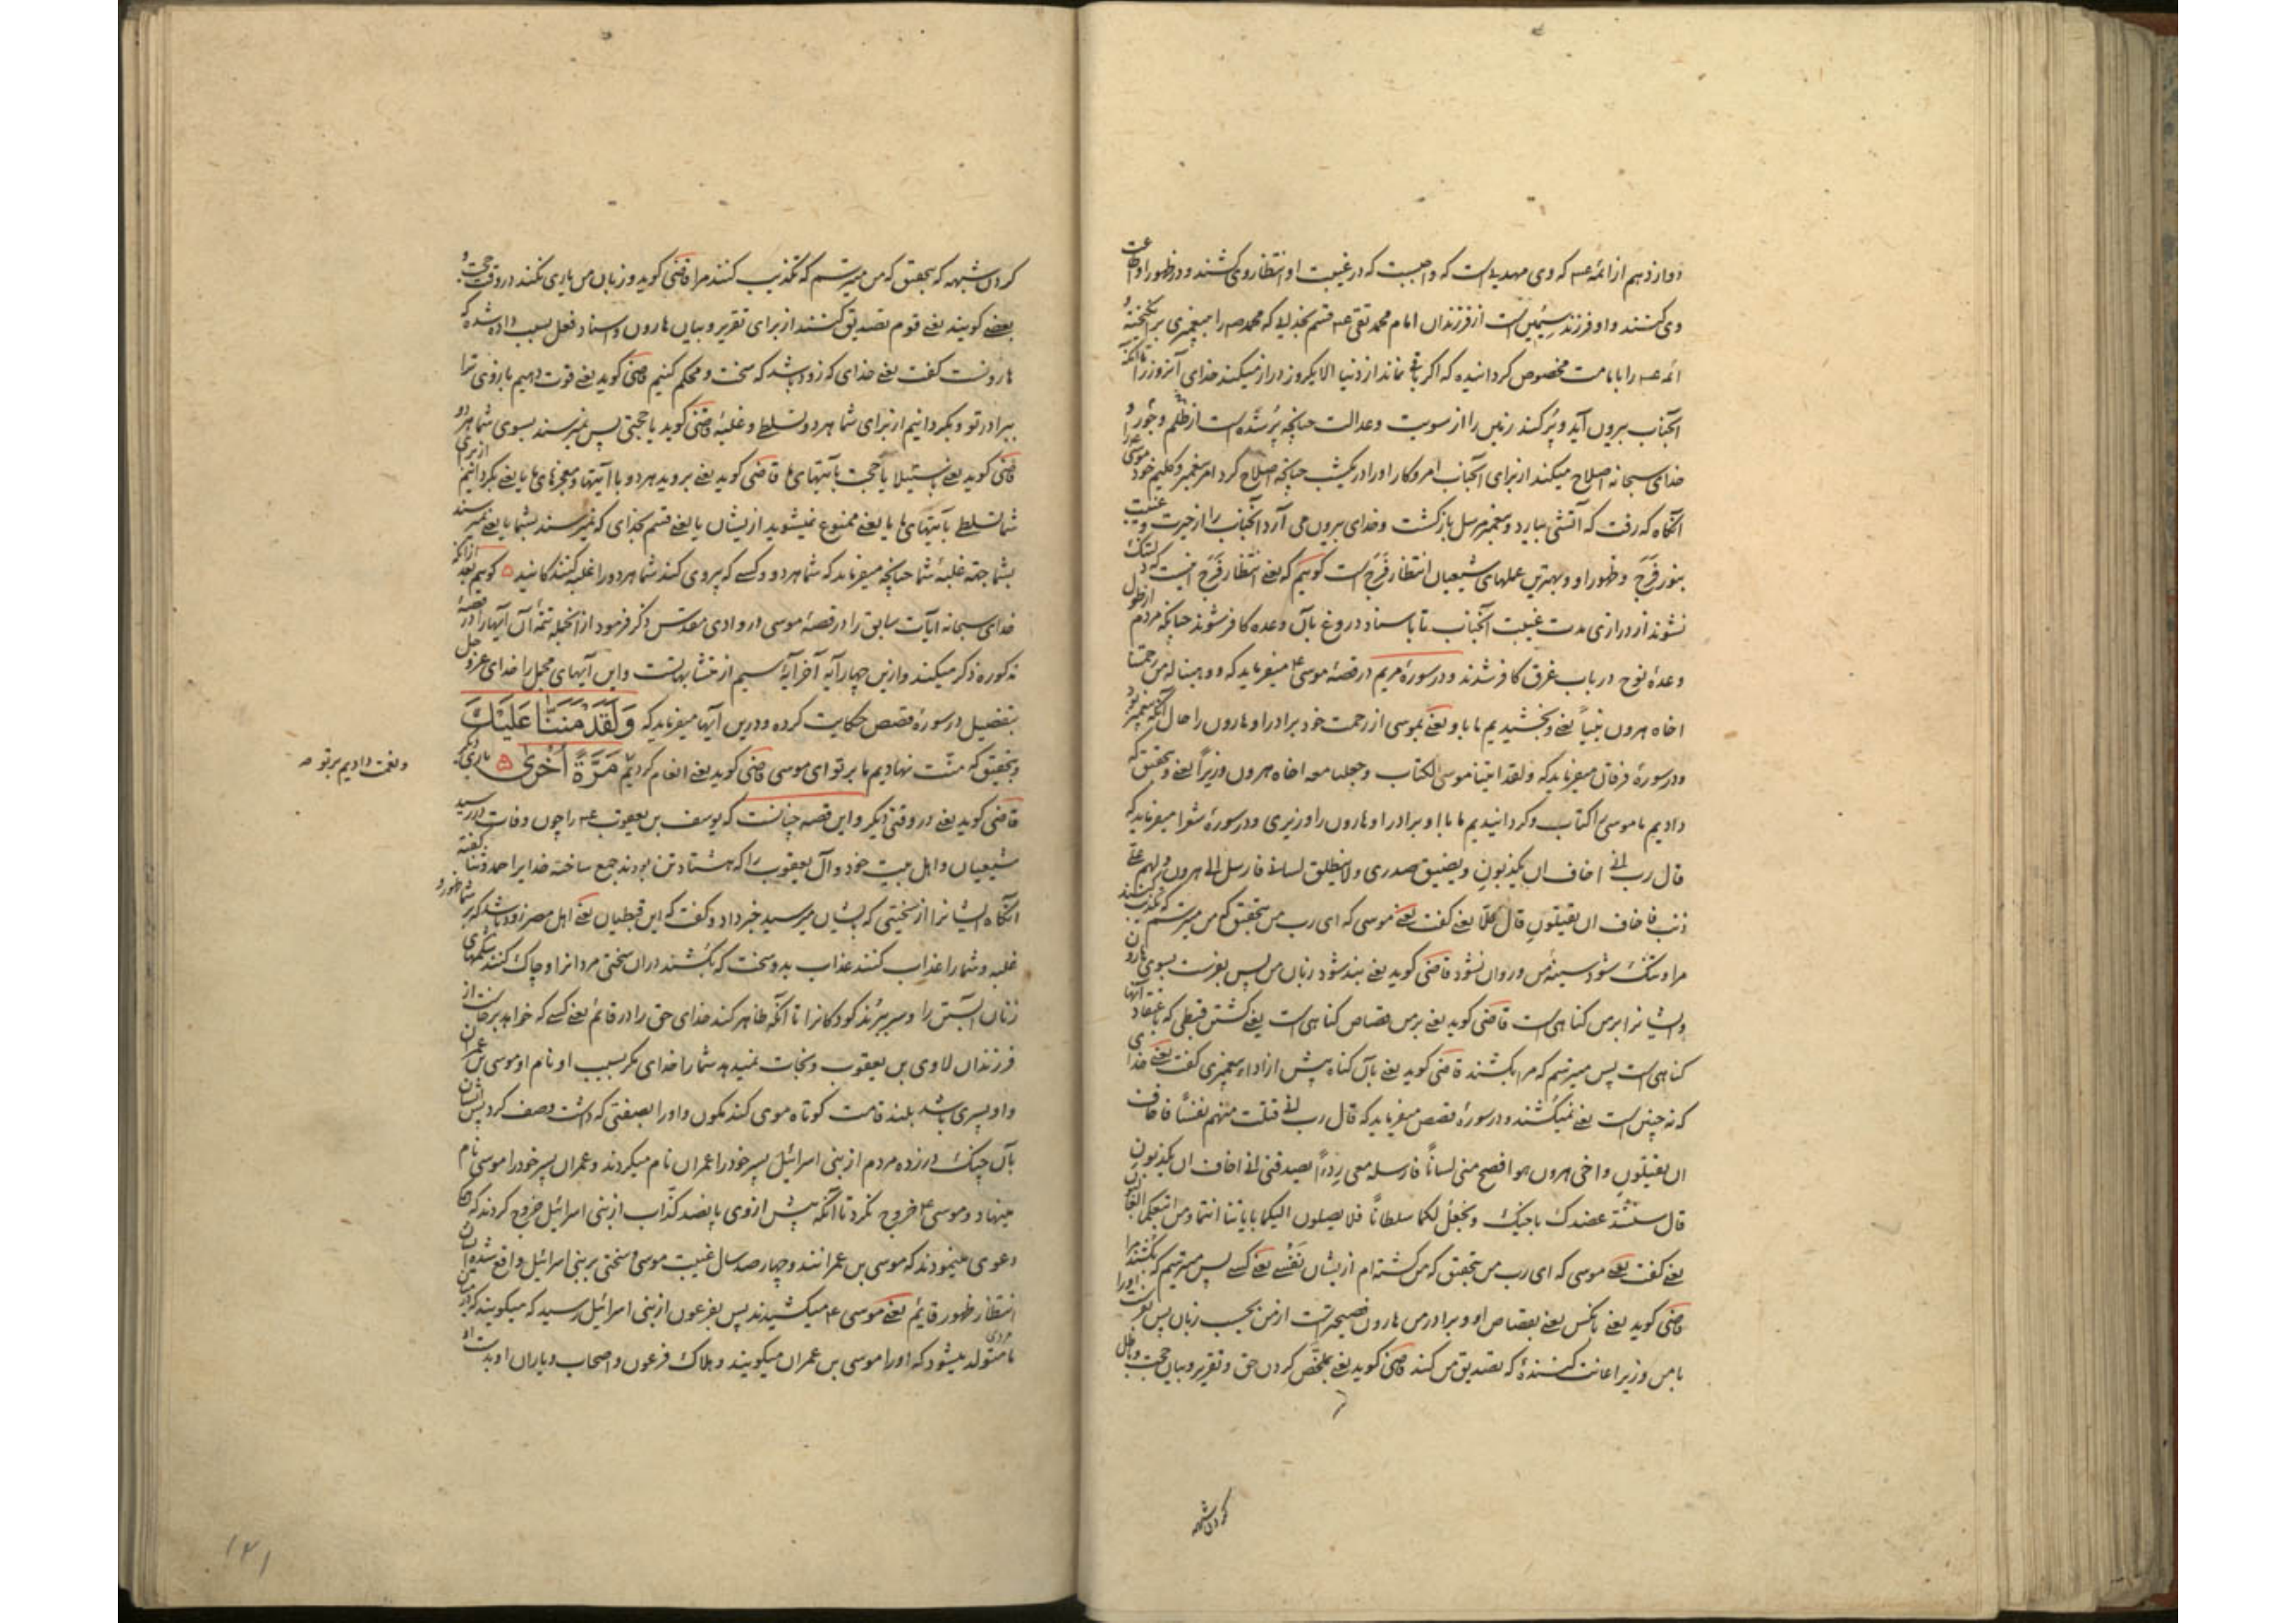 دوازدهم از ائمه عـ که وی مهدیست که واجبست که در غیبت او انتظار وی کشند و در ظهور او اطاعت
وی کنند و او فرزند سیمین است از فرزندان امام محمد تقی عـ قسم بخدای که محمد صـ را به پیغمبری برانگیخته و
ائمه عـ را بامامت مخصوص گردانیده که اگر باقی نماند از دنیا الا یکروز دراز میکند خدای آنروز را تا آنکه
آنجناب بیرون آید و پر کند زمین را از سویت و عدالت چنانچه پر شده است از ظلم و جور و
خدای سبحانه اصلاح میکند از برای آنجناب امر و کار او را در یکشب چنانچه اصلاح کرد امر پیغمبر و کلیم خود موسی را
آنگاه که رفت که آتشی بیارد و پیغمبر مرسل بازگشت و خدای بیرون می آرد آنجناب را از حیرت و غیبت
بنور فرج و ظهور او و بهترین عملهای شیعیان انتظار فرج است گوییم که یعنی انتظار فرج اینست که دلتنگ
نشوند از درازی مدت غیبت آنجناب تا باسناد دروغ بآن وعده کافر شوند چنانکه مردم از طول
وعدهٔ نوح در باب غرق کافر شدند و در سورهٔ مریم در قصهٔ موسی ع میفرماید که و وهبنا له من رحمتنا
اخاه هرون نبیاً یعنی و بخشیدیم ما باو یعنی بموسی از رحمت خود برادر او هارون را حال آنکه پیغمبر بود
و در سورهٔ فرقان میفرماید که ولقد اتینا موسی الکتاب وجعلنا معه اخاه هرون وزیراً یعنی و بتحقیق که
دادیم ما موسی را کتاب و گردانیدیم ما با او برادر او هارون را وزیری و در سورهٔ شعرا میفرماید که
قال رب انی اخاف ان یکذبونِ ویضیق صدری ولا ینطلق لسانی فارسل الی هرون ولهم علیّ
ذنب فاخاف ان یقتلونِ قال کلّا یعنی گفت یعنی موسی که ای رب من بتحقیق که من میترسم که تکذیب کنند
مرا و تنگ شود سینهٔ من و روان نشود قاضی گوید یعنی بند شود زبان من پس بفرست بسوی هارون
و ایشانرا بر من گناهی است قاضی گوید یعنی بر من قصاص گناهی است یعنی کشتن قبطی که باعتقاد آنها
گناهی است پس میترسم که مرا بکشند قاضی گوید یعنی بآن گناه پیش از اداء پیغمبری گفت یعنی خدای
که نه چنین است یعنی نمیکشند و در سورهٔ قصص میفرماید که قال رب انی قتلت منهم نفساً فاخاف
ان یقتلونِ واخی هرون هو افصح منی لساناً فارسله معی رِدءاً یصدقنی انی اخاف ان یکذبونِ
قال سنشدّ عضدک باخیک ونجعلُ لکما سلطاناً فلا یصلون الیکما بایاتنا انتما ومن اتبعکما الغالبون
یعنی گفت یعنی موسی که ای رب من بتحقیق که من کشته‌ام از یشان نفسی یعنی کسی پس میترسم که بکشند مرا
قاضی گوید یعنی بانکس یعنی بقصاص او و برادر من هارون فصیحترست از من بحسب زبان پس بفرست او را
با من وزیر اعانت کنندهٔ که تصدیق من کند قاضی گوید یعنی بملخّص کردن حق و تقریر و بیان حجت و باطل
کردن شبهه
کردن شبهه که بتحقیق که من میترسم که تکذیب کنند مرا قاضی گوید و زبان من یاری نکند در وقت حجت و
بعضی گویند یعنی قوم تصدیق کنند از برای تقریر و بیان هارون و اسناد فعل بسبب داده شده که
هارونست گفت یعنی خدای که زود باشد که سخت و محکم کنیم قاضی گوید یعنی قوت دهیم بازوی ترا
ببرادر تو و بگردانیم از برای شما هر دو تسلطی و غلبهٔ قاضی گوید یا حجتی پس نمیرسند بسوی شما هر دو
قاضی گوید یعنی باستیلا یا حجت بآیتهای ما قاضی گوید یعنی بروید هر دو با آیتها و معجزهای ما یا یعنی بگردانیم از برای
شما تسلط بآیتهای ما یا یعنی ممنوع میشوید از یشان یا یعنی قسم بخدای که نمیرسند بشما یا یعنی نمیرسند
بشما جهة غلبهٔ شما چنانچه میفرماید که شما هر دو و کسی که پیروی کند شما هر دو را غلبه کنندگانید ۵ گوییم بعد از آنکه
خدای سبحانه آیات سابق را در قصهٔ موسی در وادی مقدس ذکر فرمود از آنجمله تتمهٔ آن آیها را در قصهٔ
مذکوره ذکر میکند و ازین چهار آیه آخر آیهٔ سیم از متشابهاتست و این آیهای مجمل را خدای عز و جل
بتفضیل در سورهٔ قصص حکایت کرده و درین آیها میفرماید که وَلَقَدْ مَنَنَّا عَلَیْکَ
و بتحقیق که منّت نهادیم ما بر تو ای موسی قاضی گوید یعنی انعام کردیم مَرَّةً اُخْرٰی ۵ باری دیگر
و نعمت دادیم بر تو صـ
قاضی گوید یعنی در وقتی دیگر و این قصه چنانست که یوسف بن یعقوب عـ را چون وفات در رسید
شیعیان و اهل بیت خود و آل یعقوب را که هشتاد تن بودند جمع ساخته خدایرا حمد و ثنا گفته
آنگاه ایشانرا از سختیی که بایشان میرسید خبر داد و گفت که این قبطیان یعنی اهل مصر زود باشد که بر شما ظهور و
غلبه و شما را عذاب کنند عذاب بد و سخت که بکشند دران سختی مردانرا و چاک کنند شکمهای
زنان آبستن را و سر ببرند کودکانرا تا آنکه ظاهر کند خدای حق را در قائم یعنی کسی که خواهد برخاست از
فرزندان لاوی بن یعقوب و نجات نمیدهد شما را خدای مگر بسبب او نام او موسی بن عمران
و او پسری باشد بلند قامت کوتاه موی گندمگون و او را بصفتی که داشت وصف کرد پس ایشان
بآن چنگ در زده مردم از بنی اسرائیل پسر خود را عمران نام میکردند و عمران پسر خود را موسی نام
مینهاد و موسی ع خروج نکرد تا آنکه پیش از وی پانصد کذّاب از بنی اسرائیل خروج کردند که
دعوی مینمودند که موسی بن عمرانند و چهار صد سال غیبت موسی و سختی بر بنی اسرائیل واقع شده
انتظار ظهور قایم یعنی موسی ع میکشیدند پس بفرعون از بنی اسرائیل رسید که میگویند که در میان
ما متولد میشود که او را موسی بن عمران میگویند و هلاک فرعون و اصحاب و یاران او بدست او
۱۲۱